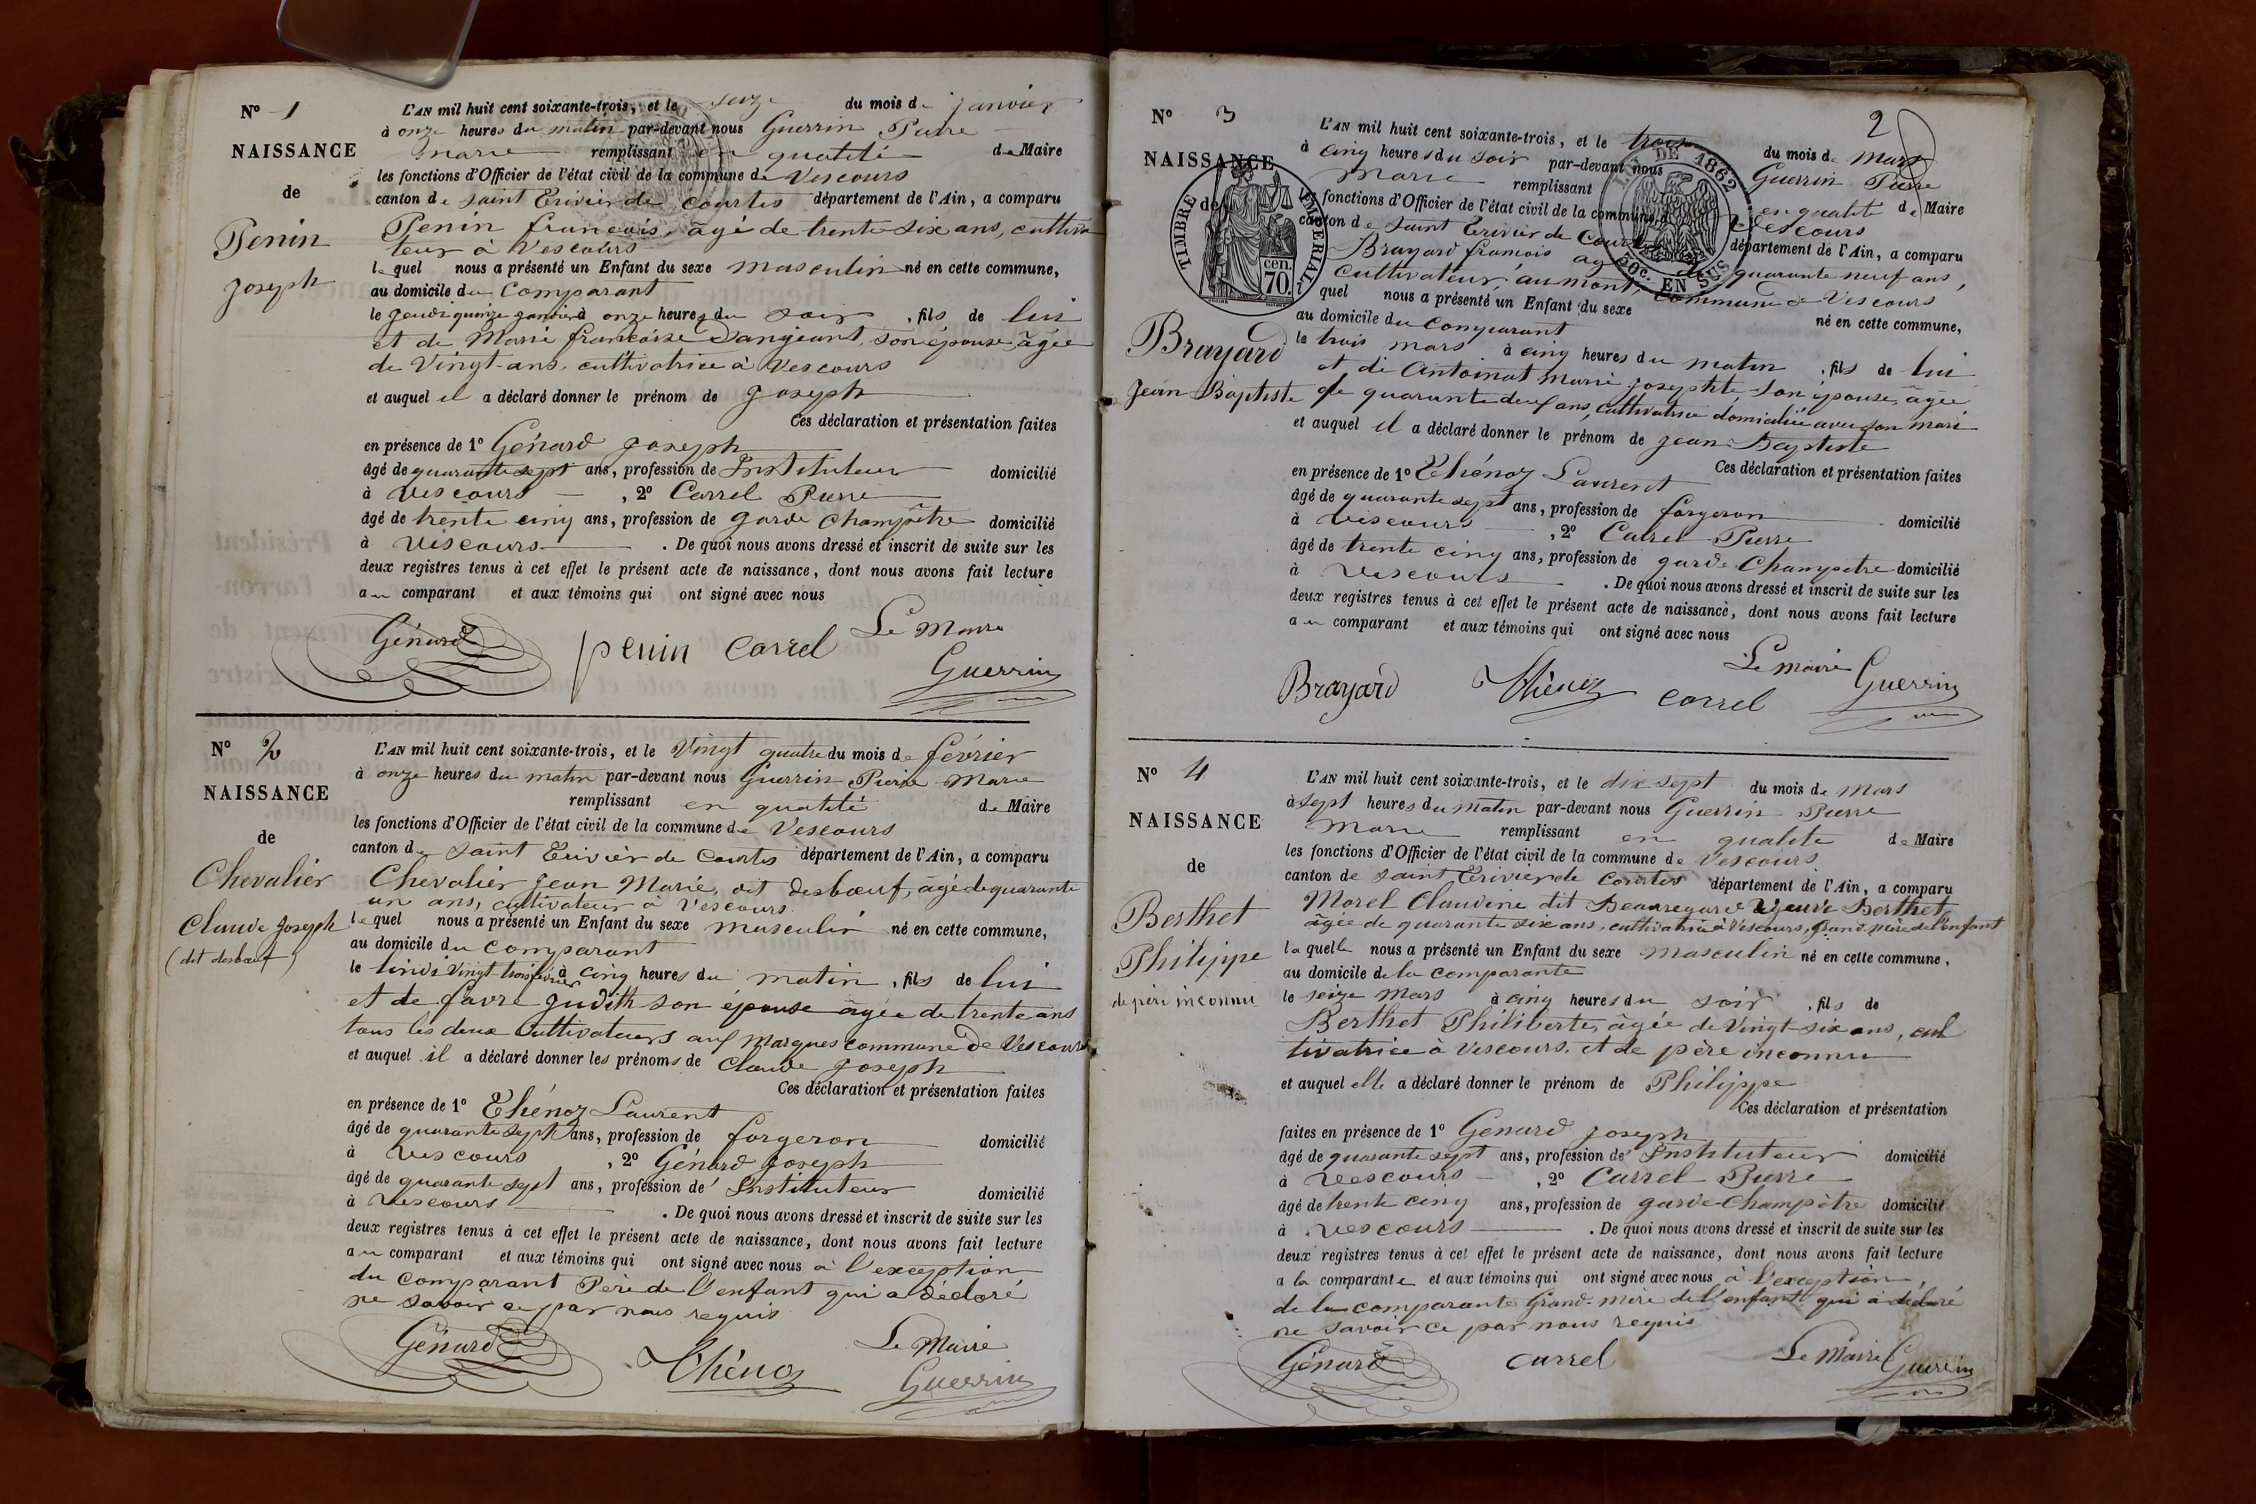 N° 1
NAISSANCE
de
Penin
Joseph
L'AN mil huit cent soixante-trois, et le seize du mois de janvier
à onze heures du matin par-devant nous Guerrin Pierre
Marie remplissant en qualité de Maire
les fonctions d'Officier de l'état civil de la commune de Vescours
canton de Saint Trivier de Courtes département de l'Ain, a comparu
Penin françois, âgé de trente-six ans, cultiva
teur à Vescours
lequel nous a présenté un Enfant du sexe masculin né en cette commune,
au domicile du comparant
le jeudi quinze janvier à onze heures du soir, fils de lui
et de Marie françoise Dangeant, son épouse, âgée
de Vingt-ans, cultivatrice à Vescours
et auquel il a déclaré donner le prénom de Joseph
Ces déclaration et présentation faites
en présence de 1° Génard Joseph
âgé de quarante sept ans, profession de Instituteur domicilié
à Vescours, 2° Carrel Pierre
âgé de trente cinq ans, profession de garde Champêtre domicilié
à Vescours. De quoi nous avons dressé et inscrit de suite sur les
deux registres tenus à cet effet le présent acte de naissance, dont nous avons fait lecture
au comparant et aux témoins qui ont signé avec nous
Génard penin Carrel Le Maire
Guerrin
N° 2
NAISSANCE
de
Chevalier
Claude Joseph
(dit desbœuf)
L'AN mil huit cent soixante-trois, et le Vingt quatre du mois de février
à onze heures du matin par-devant nous Guerrin Pierre Marie
remplissant en qualité de Maire
les fonctions d'Officier de l'état civil de la commune de Vescours
canton de Saint Trivier de Courtes département de l'Ain, a comparu
Chevalier Jean Marie, dit desbœuf, âgé de quarante
un ans, cultivateur à Vescours
lequel nous a présenté un Enfant du sexe masculin né en cette commune,
au domicile du comparant
le lundi vingt trois février à cinq heures du matin, fils de lui
et de favre Judith son épouse âgée de trente ans
tous les deux Cultivateurs aux Marques commune de Vescours
et auquel il a déclaré donner les prénoms de Claude Joseph
Ces déclaration et présentation faites
en présence de 1° Thénoz Laurent
âgé de quarante sept ans, profession de forgeron domicilié
à Vescours, 2° Génard Joseph
âgé de quarante sept ans, profession de Instituteur domicilié
à Vescours. De quoi nous avons dressé et inscrit de suite sur les
deux registres tenus à cet effet le présent acte de naissance, dont nous avons fait lecture
au comparant et aux témoins qui ont signé avec nous à l'exception
du comparant Père de l'enfant qui a déclaré
ne savoir ce par nous requis
Génard Thénoz Le Maire
Guerrin
2
N° 3
NAISSANCE
de
TIMBRE IMPERIAL
70 cen.
LOI DE 1862
50c. EN SUS
Brayard
Jean-Baptiste
L'AN mil huit cent soixante-trois, et le trois du mois de Mars
à cinq heures du soir par-devant nous Guerrin Pierre
Marie remplissant en qualité de Maire
fonctions d'Officier de l'état civil de la commune Vescours
canton de Saint Trivier de Courtes département de l'Ain, a comparu
Brayard francois quarante neuf ans,
cultivateur, au mont, commune de Vescours
quel nous a présenté un Enfant du sexe né en cette commune,
au domicile du comparant
le trois mars à cinq heures du matin, fils de lui
et de Antoinat Marie Josephte son épouse, âgée
de quarante deux ans, cultivatrice domiciliée avec son mari
et auquel il a déclaré donner le prénom de Jean-Baptiste
Ces déclaration et présentation faites
en présence de 1° Thénoz Laurent
âgé de quarante sept ans, profession de forgeron domicilié
à Vescours, 2° Carrel Pierre
âgé de trente cinq ans, profession de garde Champetre domicilié
à Vescours. De quoi nous avons dressé et inscrit de suite sur les
deux registres tenus à cet effet le présent acte de naissance, dont nous avons fait lecture
au comparant et aux témoins qui ont signé avec nous
Brayard Thénoz Carrel Le maire Guerrin
N° 4
NAISSANCE
de
Berthet
Philippe
de père inconnu
L'AN mil huit cent soixante-trois, et le dix sept du mois de Mars
à sept heures du matin par-devant nous Guerrin Pierre
Marie remplissant en qualité de Maire
les fonctions d'Officier de l'état civil de la commune de Vescours
canton de Saint Trivier de Courtes département de l'Ain, a comparu
Morel Claudine dit Beauregard Veuve Berthet
âgée de quarante six ans, cultivatrice à Vescours, grand mère de l'enfant
laquelle nous a présenté un Enfant du sexe masculin né en cette commune,
au domicile de la comparante
le seize Mars à cinq heures du soir, fils de
Berthet Philiberte, âgée de Vingt-six ans, cul
tivatrice à Vescours, et de père inconnu
et auquel elle a déclaré donner le prénom de Philippe
Ces déclaration et présentation
faites en présence de 1° Genard Joseph
âgé de quarante sept ans, profession de Instituteur domicilié
à Vescours, 2° Carrel Pierre
âgé de trente cinq ans, profession de garde-Champêtre domicilié
à Vescours. De quoi nous avons dressé et inscrit de suite sur les
deux registres tenus à cet effet le présent acte de naissance, dont nous avons fait lecture
a la comparante et aux témoins qui ont signé avec nous à l'exception
de la comparante Grand-mère de l'enfant qui a déclaré
ne savoir ce par nous requis
Génard Carrel Le Maire Guerrin